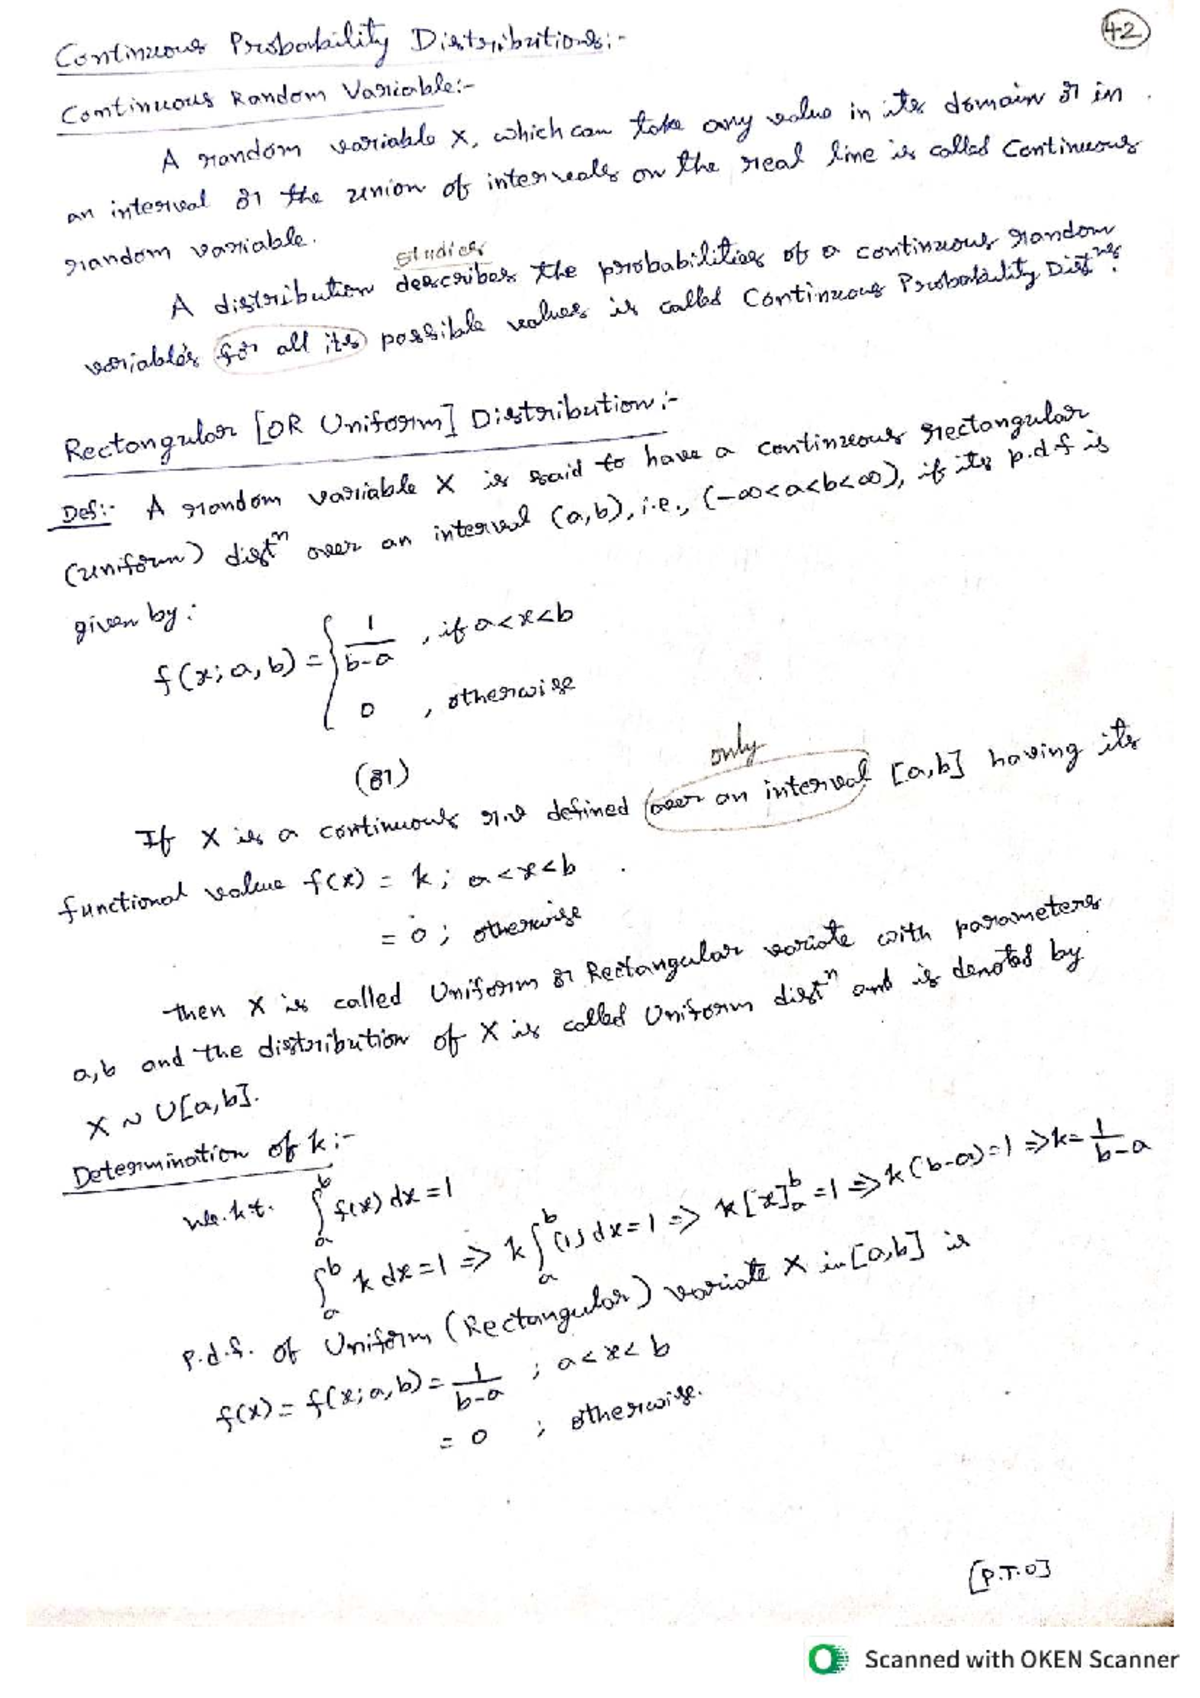 42
Continuous Probability Distributions:-
Continuous Random Variable:-
A random variable X, which can take any value in its domain or in
an interval or the union of intervals on the real line is called Continuous
random variable.
studies
A distribution describes the probabilities of a continuous random
variable's for all its possible values is called Continuous Probability Distns.
Rectangular [OR Uniform] Distribution:-
Def:- A random variable X is said to have a continuous rectangular
(uniform) distn over an interval (a,b), i.e., (-∞<a<b<∞), if its p.d.f is
given by:
f(x; a, b) = { 1/(b-a) , if a<x<b
0 , otherwise
(or)
only
If X is a continuous r.v defined over an interval [a,b] having its
functional value f(x) = k; a<x<b
= 0; otherwise
then X is called Uniform or Rectangular variate with parameters
a,b and the distribution of X is called Uniform distn and is denoted by
X ~ U[a,b].
Determination of k:-
w.k.t. ∫_a^b f(x) dx = 1
∫_a^b k dx = 1 ⇒ k ∫_a^b (1) dx = 1 ⇒ k [x]_a^b = 1 ⇒ k(b-a) = 1 ⇒ k = 1/(b-a)
P.d.f. of Uniform (Rectangular) variate X in [a,b] is
f(x) = f(x; a, b) = 1/(b-a) ; a<x<b
= 0 ; otherwise.
[P.T.O]
Scanned with OKEN Scanner